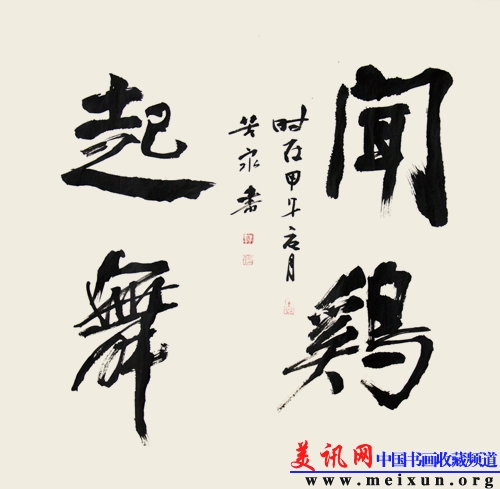 聞鷄
起舞
時在甲午元月
泉書
美讯网 中国书画收藏频道
www.meixun.org